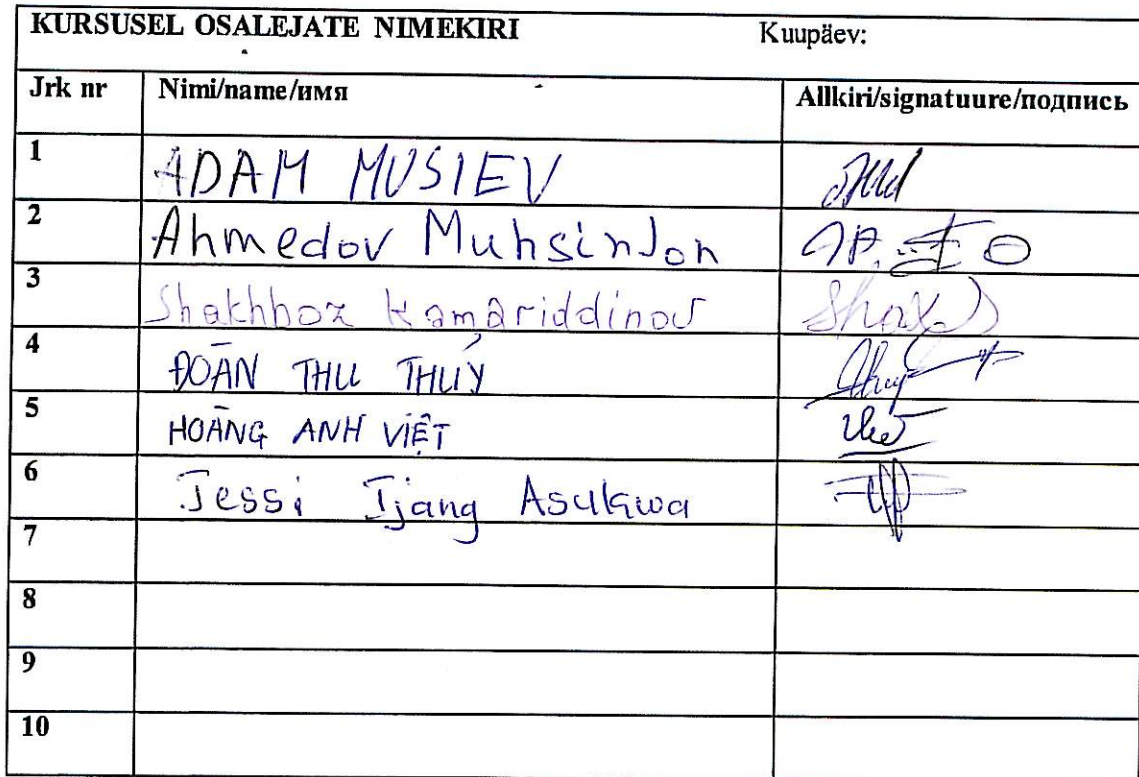 KURSUSEL OSALEJATE NIMEKIRI Kuupäev:
Jrk nr Nimi/name/имя Allkiri/signatuure/подпись
1 ADAM MUSIEV
2 Ahmedov MuhsinJon
3 Shakhboz Kamariddinov
4 ĐOÀN THU THUỶ
5 HOÀNG ANH VIỆT
6 Jessi Ijang Asukwa
7
8
9
10